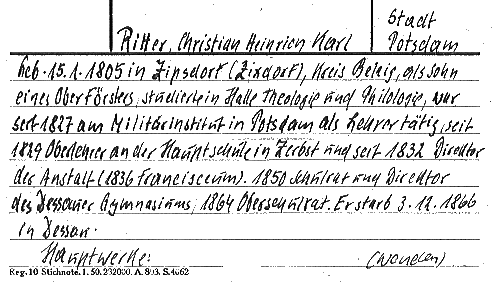 Stadt
Ritter, Christian Heinrich Karl Potsdam
Geb. 15.1.1805 in Zipsdorf (Zixdorf), Kreis Belzig, als Sohn
eines Oberförsters, studierte in Halle Theologie und Philologie, war
seit 1827 am Militärinstitut in Potsdam als Lehrer tätig, seit
1829 Oberlehrer an der Hauptschule in Zerbst und seit 1832 Direktor
der Anstalt (1836 Francisceum). 1850 Schulrat und Direktor
des Dessauer Gymnasiums, 1864 Oberschulrat. Er starb 3.12.1866
in Dessau.
Hauptwerke: (wenden)
Reg. 10 Stichnote. I. 50. 232000. A. 893. S. 4662